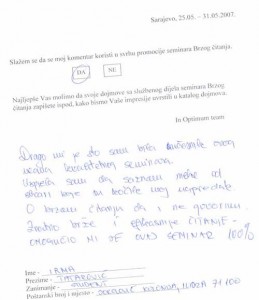 Sarajevo, 25.05. - 31.05.2007.
Slažem se da se moj komentar koristi u svrhu promocije seminara Brzog čitanja.
DA NE
Najljepše Vas molimo da svoje dojmove sa službenog dijela seminara Brzog
čitanja zapišete ispod, kako bismo Vaše impresije uvrstili u katalog dojmova.
In Optimum team
Drago mi je što sam bila učesnik ovog
seminara.
Uspjela sam da saznam neke od
stvari koje su
O brzom čitanju da i ne govorim.
Znatno brže i efikasnije ČITANJE -
OMOGUĆIO MI JE OVAJ SEMINAR 100%
Ime - IRMA
Prezime -
Zanimanje - STUDENT
Poštanski broj i mjesto - 71 100